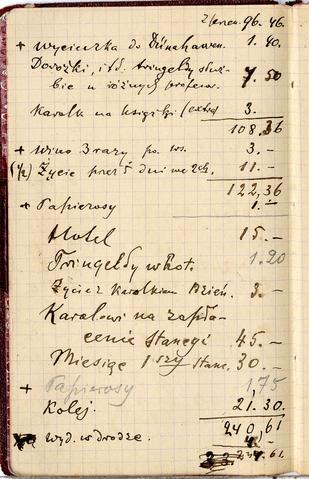 96. 46.
+ Wycieczka do Dünahawen. 1. 40.
Dorożki, itd. tringeldy służ-
bie u różnych profesor. 7. 50
Karolk na książki (extra) 3. —
108,36
+ Wino 3 razy po 3. —
(1/2) Życie przez 5 dni we 11. —
122,36
+ Papierosy 1. —
Hotel 15. —
Tringeldy w hot. 1.20
Życie z Karolkiem Dzień. 3. —
Karolowi na zapła-
cenie Stancyi 45. —
Miesiąc 1szy Stanc. 30. —
+ Papierosy 1,75
Kolej. 21. 30.
240,61
Wyd. w drodze. 4. —